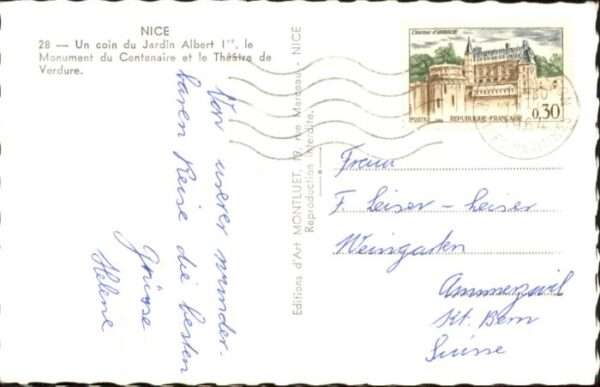 NICE
28 — Un coin du Jardin Albert Iᵉʳ, le
Monument du Centenaire et le Théâtre de
Verdure.
Von userer wunder-
baren Reise die besten
Grüsse
Helene
Editions d'Art MONTLUET, 19, rue Marceau - NICE
Reproduction interdite.
Château d'AMBOISE
0,30
POSTES REPUBLIQUE FRANÇAISE
F. Leiser - Leiser
Weingarten
Ammerzwil
Kt. Bern
Suisse